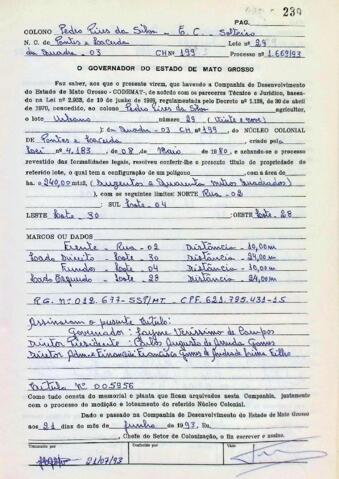 PAG.
239
COLONO Pedro Pires da Silva - E. C. - Solteiro
N. C. de Pontes e Lacerda Lote Nº 29
da Quadra - 03 CH Nº 199 Processo nº 1.669/93
O GOVERNADOR DO ESTADO DE MATO GROSSO
Faz saber, aos que o presente virem, que havendo a Companhia de Desenvolvimento
do Estado de Mato Grosso - CODEMAT-, de acordo com os pareceres Técnico e Jurídico, basea-
do na Lei nº 2.903, de 19 de junho de 1969, regulamentada pelo Decreto nº 1.138, de 30 de abril
de 1970, concedido, ao colono Pedro Pires da Silva agricultor,
o lote Urbano número 29 (Vinte e nove)
); Em Quadra - 03 CH nº 199, do NÚCLEO COLONIAL
DE Pontes e Lacerda, criado pela
Lei nº 4.183, de 08, de Maio de 1980, e achando-se o processo
revestido das formalidades legais, resolveu conferir-lhe o presente título de propriedade
do referido lote, o qual tem a configuração de um polígono com a área de
ha 240,00 mts2, (Duzentos e Quarenta Metros Quadrados)
), com os seguintes limites: NORTE Rua - 02
SUL Lote - 04
LESTE Lote - 30 OESTE Lote - 28
MARCOS OU DADOS
Frente - Rua - 02 Distância - 10,00m
Lado Direito - Lote - 30 Distância - 24,00m
Fundos - Lote - 04 Distância - 10,00m
Lado Esquerdo - Lote - 28 Distância - 24,00m
R.G. nº 012.677-SSP/MT. - CPF. 621.795.431-15
Assinaram o presente Título:
Governador: Jayme Veríssimo de Campos
Diretor Presidente: Carlos Augusto de Arruda Gomes
Diretor Adm. e Financeiro Francisco Gomes de Andrade Lima Filho
Título nº 005956
Como tudo consta do memorial e planta que ficam arquivados nesta Companhia, juntamente
com o processo de medição e loteamento do referido Núcleo Colonial.
Dado e passado na Companhia de Desenvolvimento do Estado de Mato Grosso
aos 21 dias do mês de Junho de 1993. Eu,
, Chefe do Setor de Colonização, o fiz escrever e assino.
21/07/93